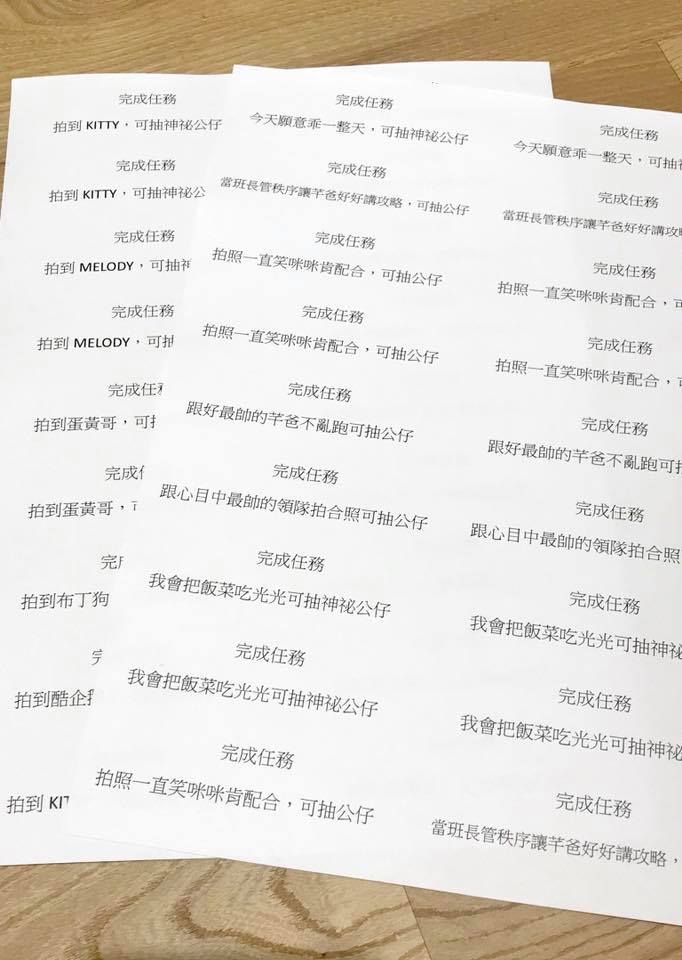 完成任務
拍到 KITTY，可抽神祕公仔
完成任務
拍到 KITTY，可抽神祕公
完成任務
拍到 MELODY，可抽神
完成任務
拍到 MELODY，可抽
完成任
拍到蛋黃哥，可抽
完成
拍到蛋黃哥，可
完成
拍到布丁狗
完
拍到酷企鵝
拍到 KIT
完成任務
今天願意乖一整天，可抽神祕公仔
完成任務
當班長管秩序讓芊爸好好講攻略，可抽公仔
完成任務
拍照一直笑咪咪肯配合，可抽公仔
完成任務
拍照一直笑咪咪肯配合，可抽公仔
完成任務
跟好最帥的芊爸不亂跑可抽公仔
完成任務
跟心目中最帥的領隊拍合照可抽公仔
完成任務
我會把飯菜吃光光可抽神祕公仔
完成任務
我會把飯菜吃光光可抽神祕公仔
完成任務
拍照一直笑咪咪肯配合，可抽公仔
完成任務
今天願意乖一整天，可抽神
完成任務
當班長管秩序讓芊爸好好講攻略
完成任務
拍照一直笑咪咪肯配合，可
完成任務
拍照一直笑咪咪肯配合，可
完成任務
跟好最帥的芊爸不亂跑可抽
完成任務
跟心目中最帥的領隊拍合照
完成任務
我會把飯菜吃光光可抽神祕
完成任務
我會把飯菜吃光光可抽神祕
完成任務
當班長管秩序讓芊爸好好講攻略，